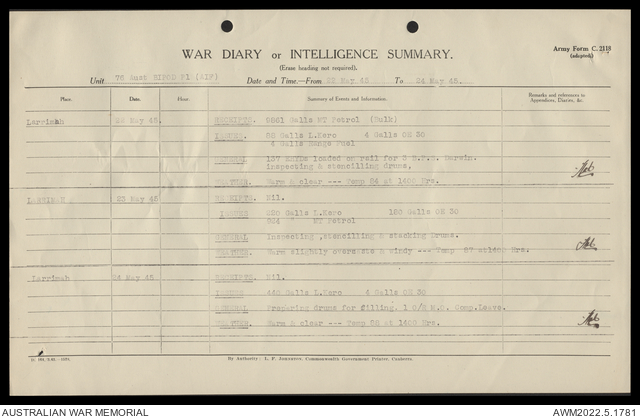 Army Form C. 2118
(adapted).
WAR DIARY or INTELLIGENCE SUMMARY.
(Erase heading not required).
Unit 76 Aust BIPOD Pl (AIF) Date and Time.—From 22 May 45 To 24 May 45.
Place. Date. Hour. Summary of Events and Information. Remarks and references to Appendices, Diaries, &c.
Larrimah 22 May 45. RECEIPTS. 9661 Galls MT Petrol (Bulk)
ISSUES 88 Galls L.Kero 4 Galls OM 30
4 Galls Range Fuel
GENERAL 137 loaded on rail for Darwin.
Inspecting & stencilling drums,
WEATHER. Warm & clear --- Temp 84 at 1400 Hrs.
Larrimah 23 May 45 RECEIPTS. Nil.
ISSUES 220 Galls L.Kero 180 Galls OM 30
" MT Petrol
GENERAL Inspecting ,stencilling & stacking Drums.
WEATHER. Warm slightly overcast & windy --- Temp 87 at1400 Hrs.
Larrimah 24 May 45 RECEIPTS. Nil.
ISSUES 440 Galls L.Kero 4 Galls OM 30
GENERAL Preparing drums for filling. 1 O/R M.O. Comp.Leave.
WEATHER. Warm & clear --- Temp at 1400 Hrs.
By Authority: L. F. Johnston, Commonwealth Government Printer, Canberra.
AUSTRALIAN WAR MEMORIAL AWM2022.5.1781